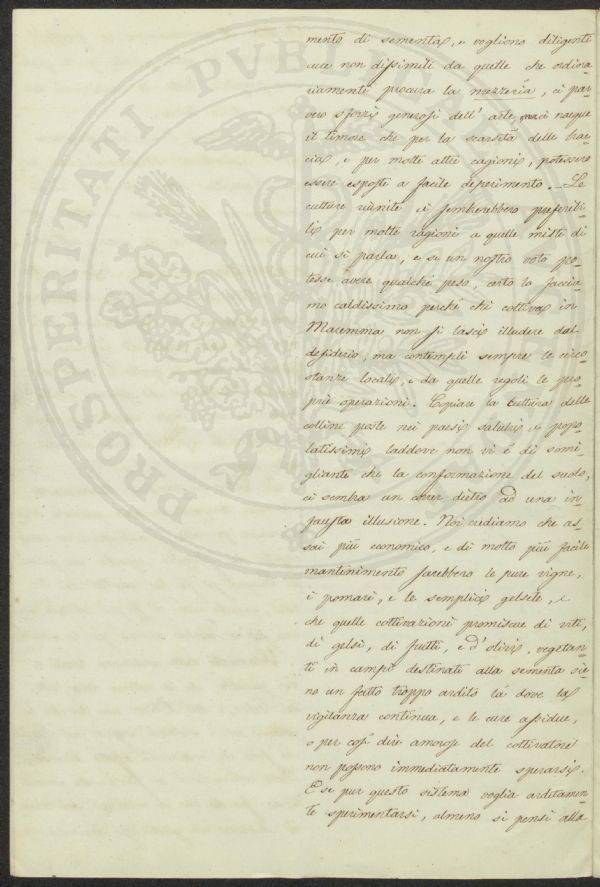 mento di sementa, e vogliono diligenti
cure non dissimili da quelle che ordina-
riamente procura la mezzeria, ci par-
vero sforzi generosi dell' arte, ma ci nacque
il timore che per la scarsità delle brac-
cia, e per molte altre cagioni, potessero
essere esposti a facile deperimento. Le
culture riunite ci sembrerebbero preferibi-
li per molte ragioni a quelle miste di
cui si parla, e se un nostro voto po-
tesse avere qualche peso, certo lo faccia-
mo caldissimo perchè chi coltiva in
Maremma non si lasci illudere dal
desiderio, ma contempli sempre le circo-
stanze locali, e da quelle regoli le pro-
prie operazioni. Copiare la cultura delle
colline poste nei paesi salubri e popo-
latissimi laddove non vi è di somi-
gliante che la conformazione del suolo,
ci sembra un correr dietro ad una in-
fausta illusione. Noi crediamo che as-
sai più economico, e di molto più facile
mantenimento sarebbero le pure vigne,
i pomari, e le semplici gelsete, e
che quelle coltivazioni promiscue di viti,
di gelsi, di frutti, e d' olivi vegetan-
ti in campi destinati alla sementa sie-
no un fatto troppo ardito là dove la
vigilanza continua, e le cure assidue,
o per così dire amorose del coltivatore
non possono immediatamente sperarsi.
E se pur questo sistema voglia arditamen-
te sperimentarsi, almeno si pensi alla
PROSPERITATI PVBLICAE